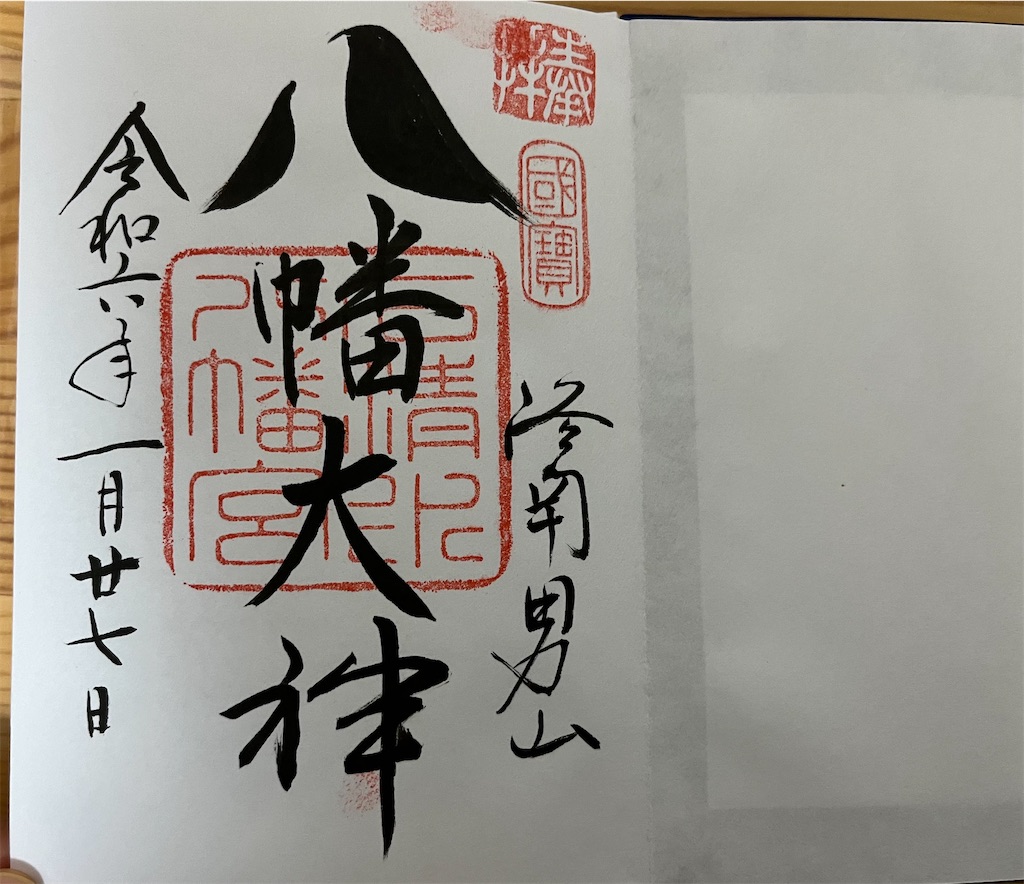 奉拝
國寶
洛南男山
八幡大神
八幡宮
令和六年一月廿七日